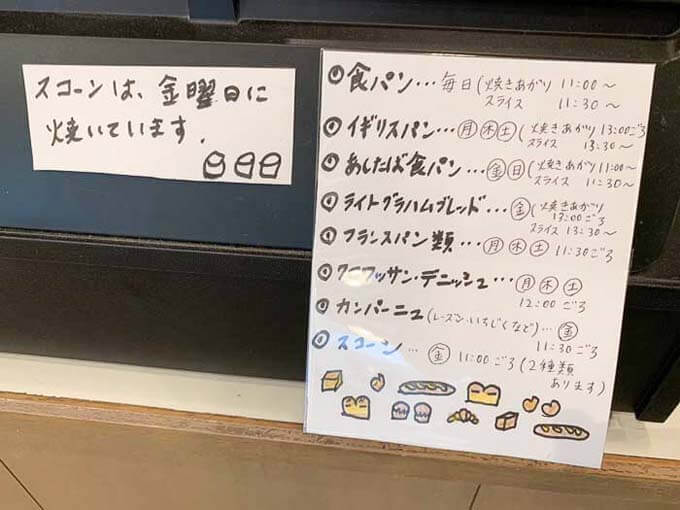 スコーンは、金曜日に
焼いています.
食パン…毎日(焼きあがり 11:00～
スライス 11:30～
イギリスパン…月木土(焼きあがり 13:00ごろ
スライス 13:30～
あしたば食パン…金日(焼きあがり 11:00～
スライス 11:30～
ライトグラハムブレッド…金(焼きあがり
13:00ごろ
スライス 13:30～
フランスパン類…月木土 11:30ごろ
クロワッサン・デニッシュ…月木土
12:00ごろ
カンパーニュ(レーズン・いちじくなど)…金
11:30ごろ
スコーン…金 11:00ごろ(2種類
あります)